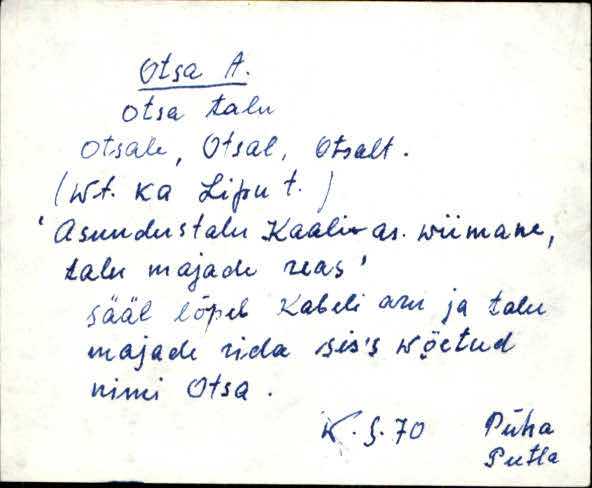 Otsa A.
Otsa talu
Otsale, Otsal, Otsalt.
(Wt. ka Lipu t.)
'Asundustalu Kaali as. wiimane,
talu majade reas'
sääl lõpeb Kabeli aru ja talu
majade rida sis's wõetud
nimi Otsa.
K. S. 70 Püha
Putla